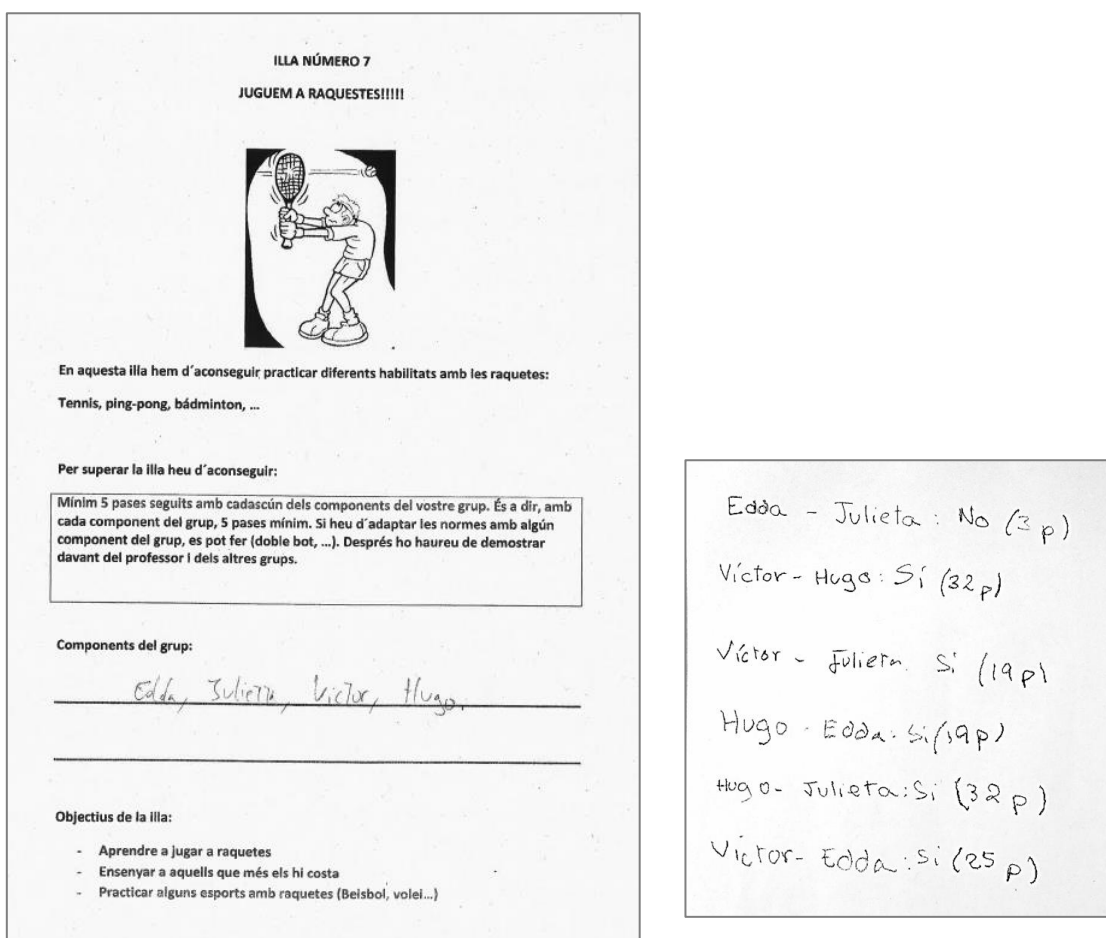 ILLA NÚMERO 7
JUGUEM A RAQUESTES!!!!!
En aquesta illa hem d´aconseguir practicar diferents habilitats amb les raquetes:
Tennis, ping-pong, bádminton, ...
Per superar la illa heu d´aconseguir:
Mínim 5 pases seguits amb cadascún dels components del vostre grup. És a dir, amb
cada component del grup, 5 pases mínim. Si heu d´adaptar les normes amb algún
component del grup, es pot fer (doble bot, ...). Després ho haureu de demostrar
davant del professor i dels altres grups.
Components del grup:
Edda, Julieta, Victor, Hugo.
Objectius de la illa:
- Aprendre a jugar a raquetes
- Ensenyar a aquells que més els hi costa
- Practicar alguns esports amb raquetes (Beisbol, volei...)
Edda - Julieta: No (3 p)
Víctor - Hugo: Sí (32 p)
Víctor - Julieta. Si (19 p)
Hugo - Edda: Si (19 p)
Hugo - Julieta: Si (32 p)
Victor - Edda: Si (25 p)